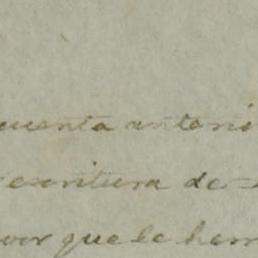 cuenta antoni
escritura de
por que le herr